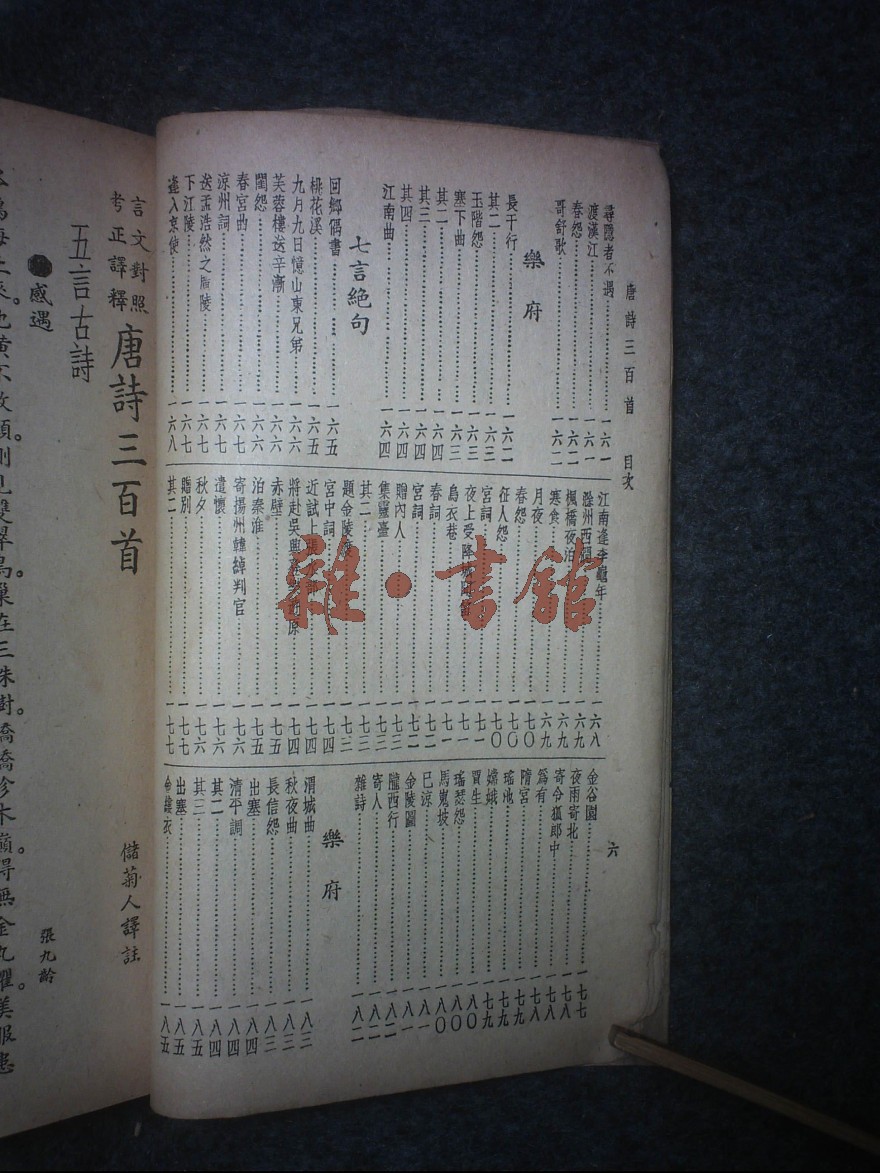 唐詩三百首 目次 六
尋隱者不遇……一六一
渡漢江……一六一
春怨……一六二
哥舒歌……一六二
樂府
長干行……一六二
其二……一六三
玉階怨……一六三
塞下曲……一六三
其二……一六四
其三……一六四
其四……一六四
江南曲……一六四
七言絕句
回鄉偶書……一六五
桃花溪……一六五
九月九日憶山東兄弟……一六六
芙蓉樓送辛漸……一六六
閨怨……一六六
春宮曲……一六七
涼州詞……一六七
送孟浩然之廣陵……一六七
下江陵……一六七
逢入京使……一六八
江南逢李龜年……一六八
滁州西澗……一六九
楓橋夜泊……一六九
寒食……一六九
月夜……一七〇
春怨……一七〇
征人怨……一七〇
宮詞……一七一
夜上受降城聞笛……一七一
烏衣巷……一七一
春詞……一七二
宮詞……一七二
贈內人……一七三
集靈臺……一七三
其二……一七三
題金陵渡……一七三
宮中詞……一七四
近試上張水部……一七四
將赴吳興登樂遊原……一七四
赤壁……一七五
泊秦淮……一七五
寄揚州韓綽判官……一七六
遣懷……一七六
秋夕……一七六
贈別……一七七
其二……一七七
金谷園……一七七
夜雨寄北……一七八
寄令狐郎中……一七八
為有……一七八
隋宮……一七九
瑤池……一七九
嫦娥……一七九
賈生……一八〇
瑤瑟怨……一八〇
馬嵬坡……一八〇
已涼……一八一
金陵圖……一八一
隴西行……一八二
寄人……一八二
雜詩……一八二
樂府
渭城曲……一八三
秋夜曲……一八三
長信怨……一八三
出塞……一八四
清平調……一八四
其二……一八四
其三……一八五
出塞……一八五
金縷衣……一八五
雜·書館
言文對照
考正譯釋
唐詩三百首
儲菊人譯註
五言古詩
●感遇 張九齡
海上來。池潢不敢顧。側見雙翠鳥。巢在三珠樹。矯矯珍木巔。得無金丸懼。美服患